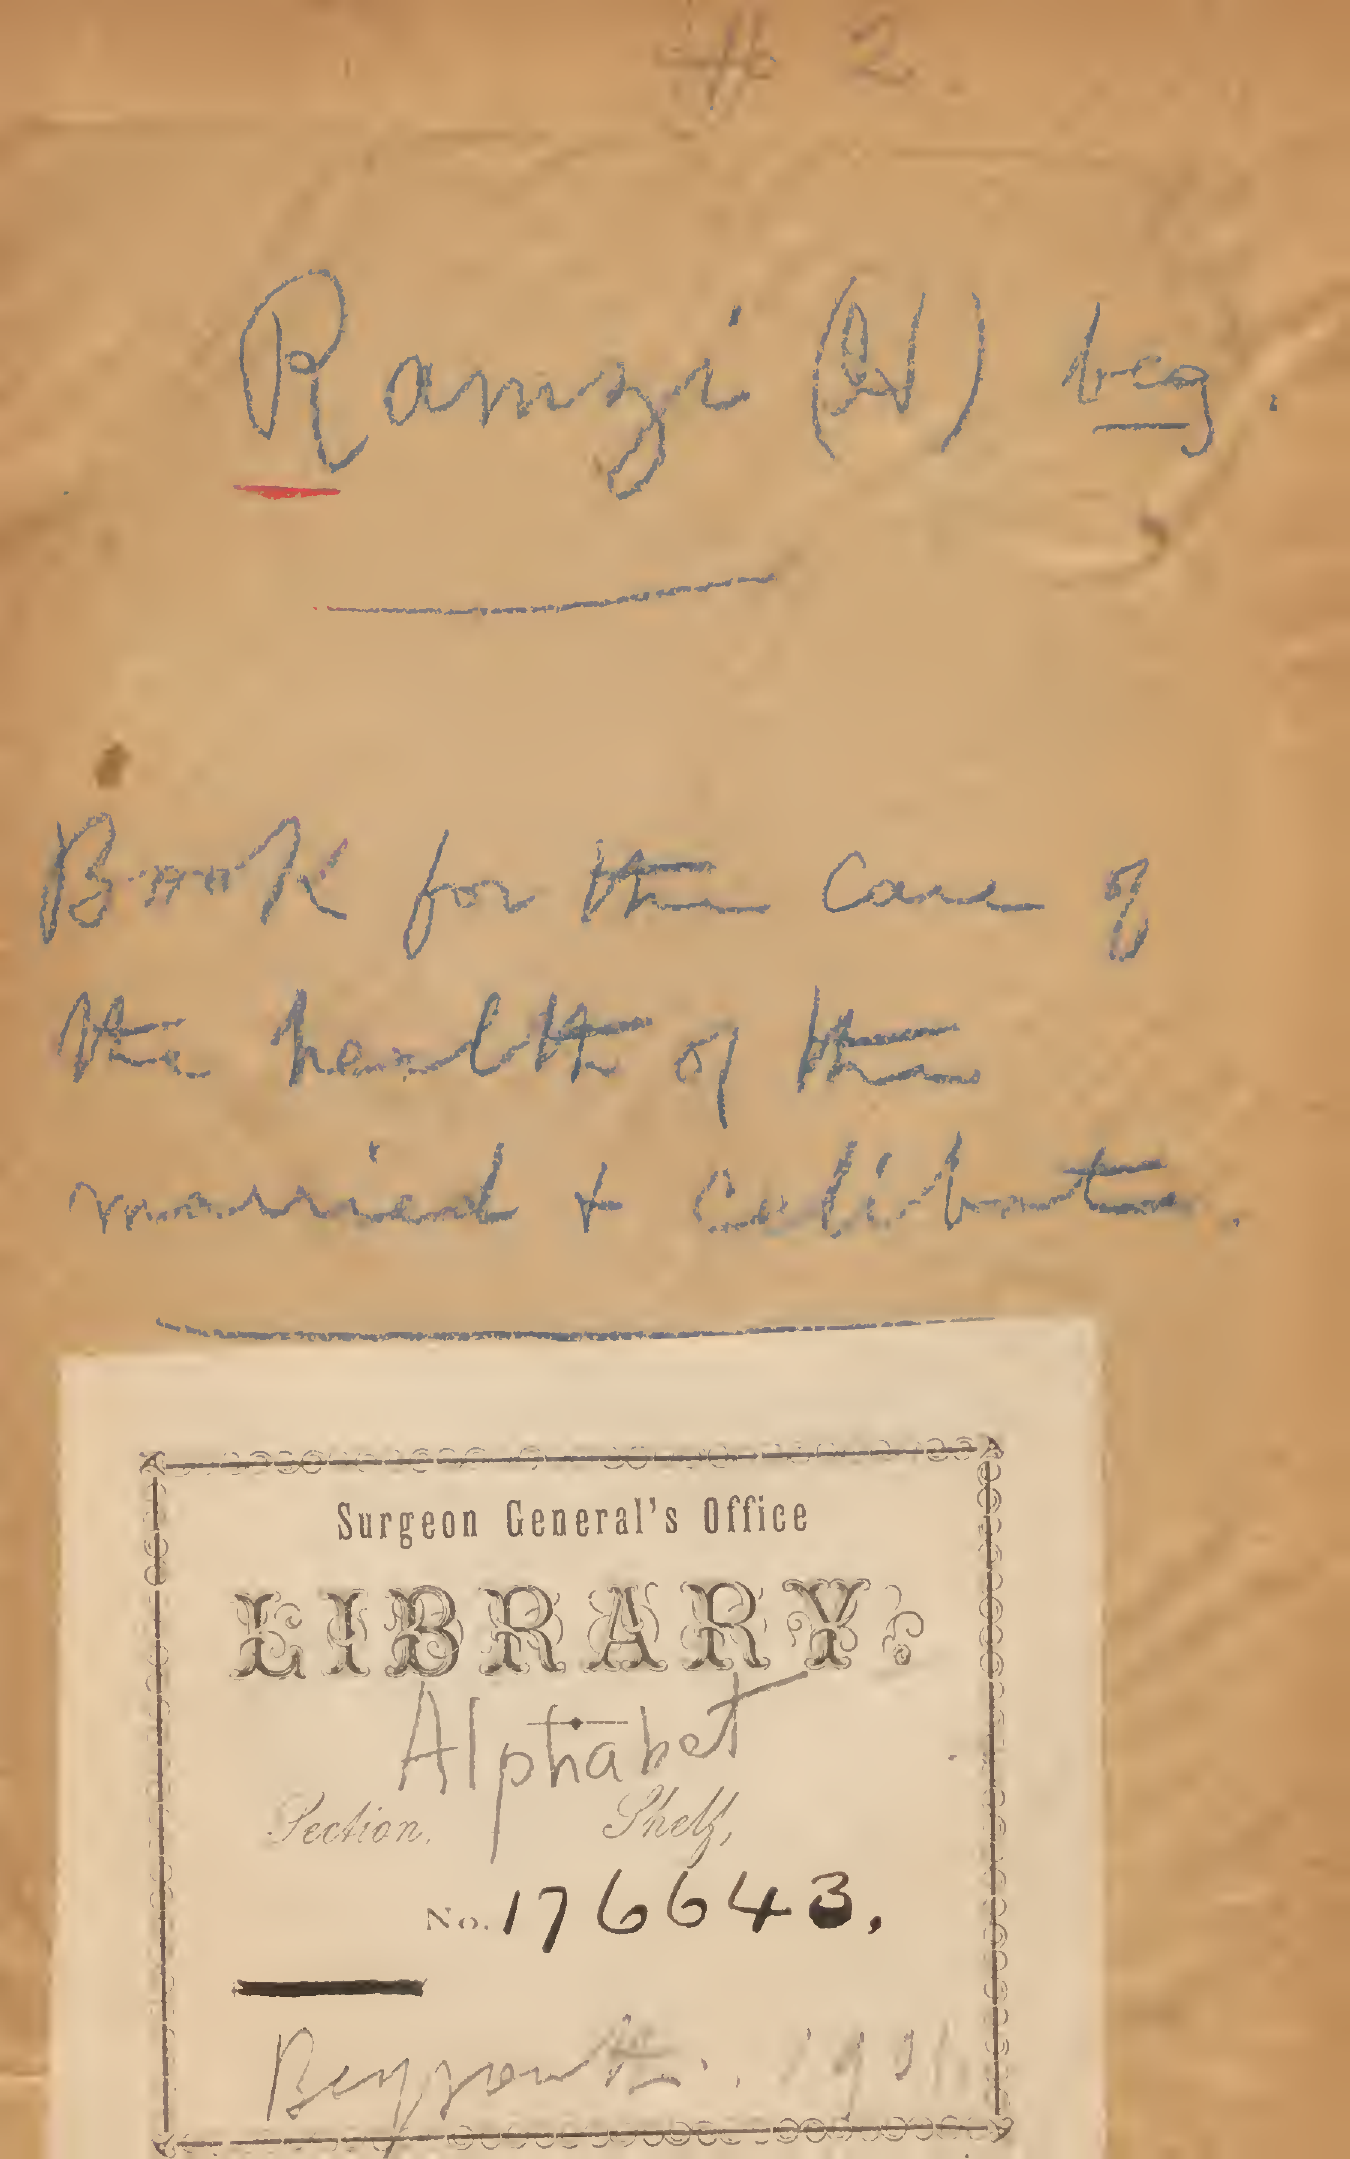 # 2.
Ramzi (N) beg.
Book for the care of
the health of the
married + celibate.
Surgeon General's Office
LIBRARY.
Alphabet
Section, Shelf,
No. 176643.
1901.